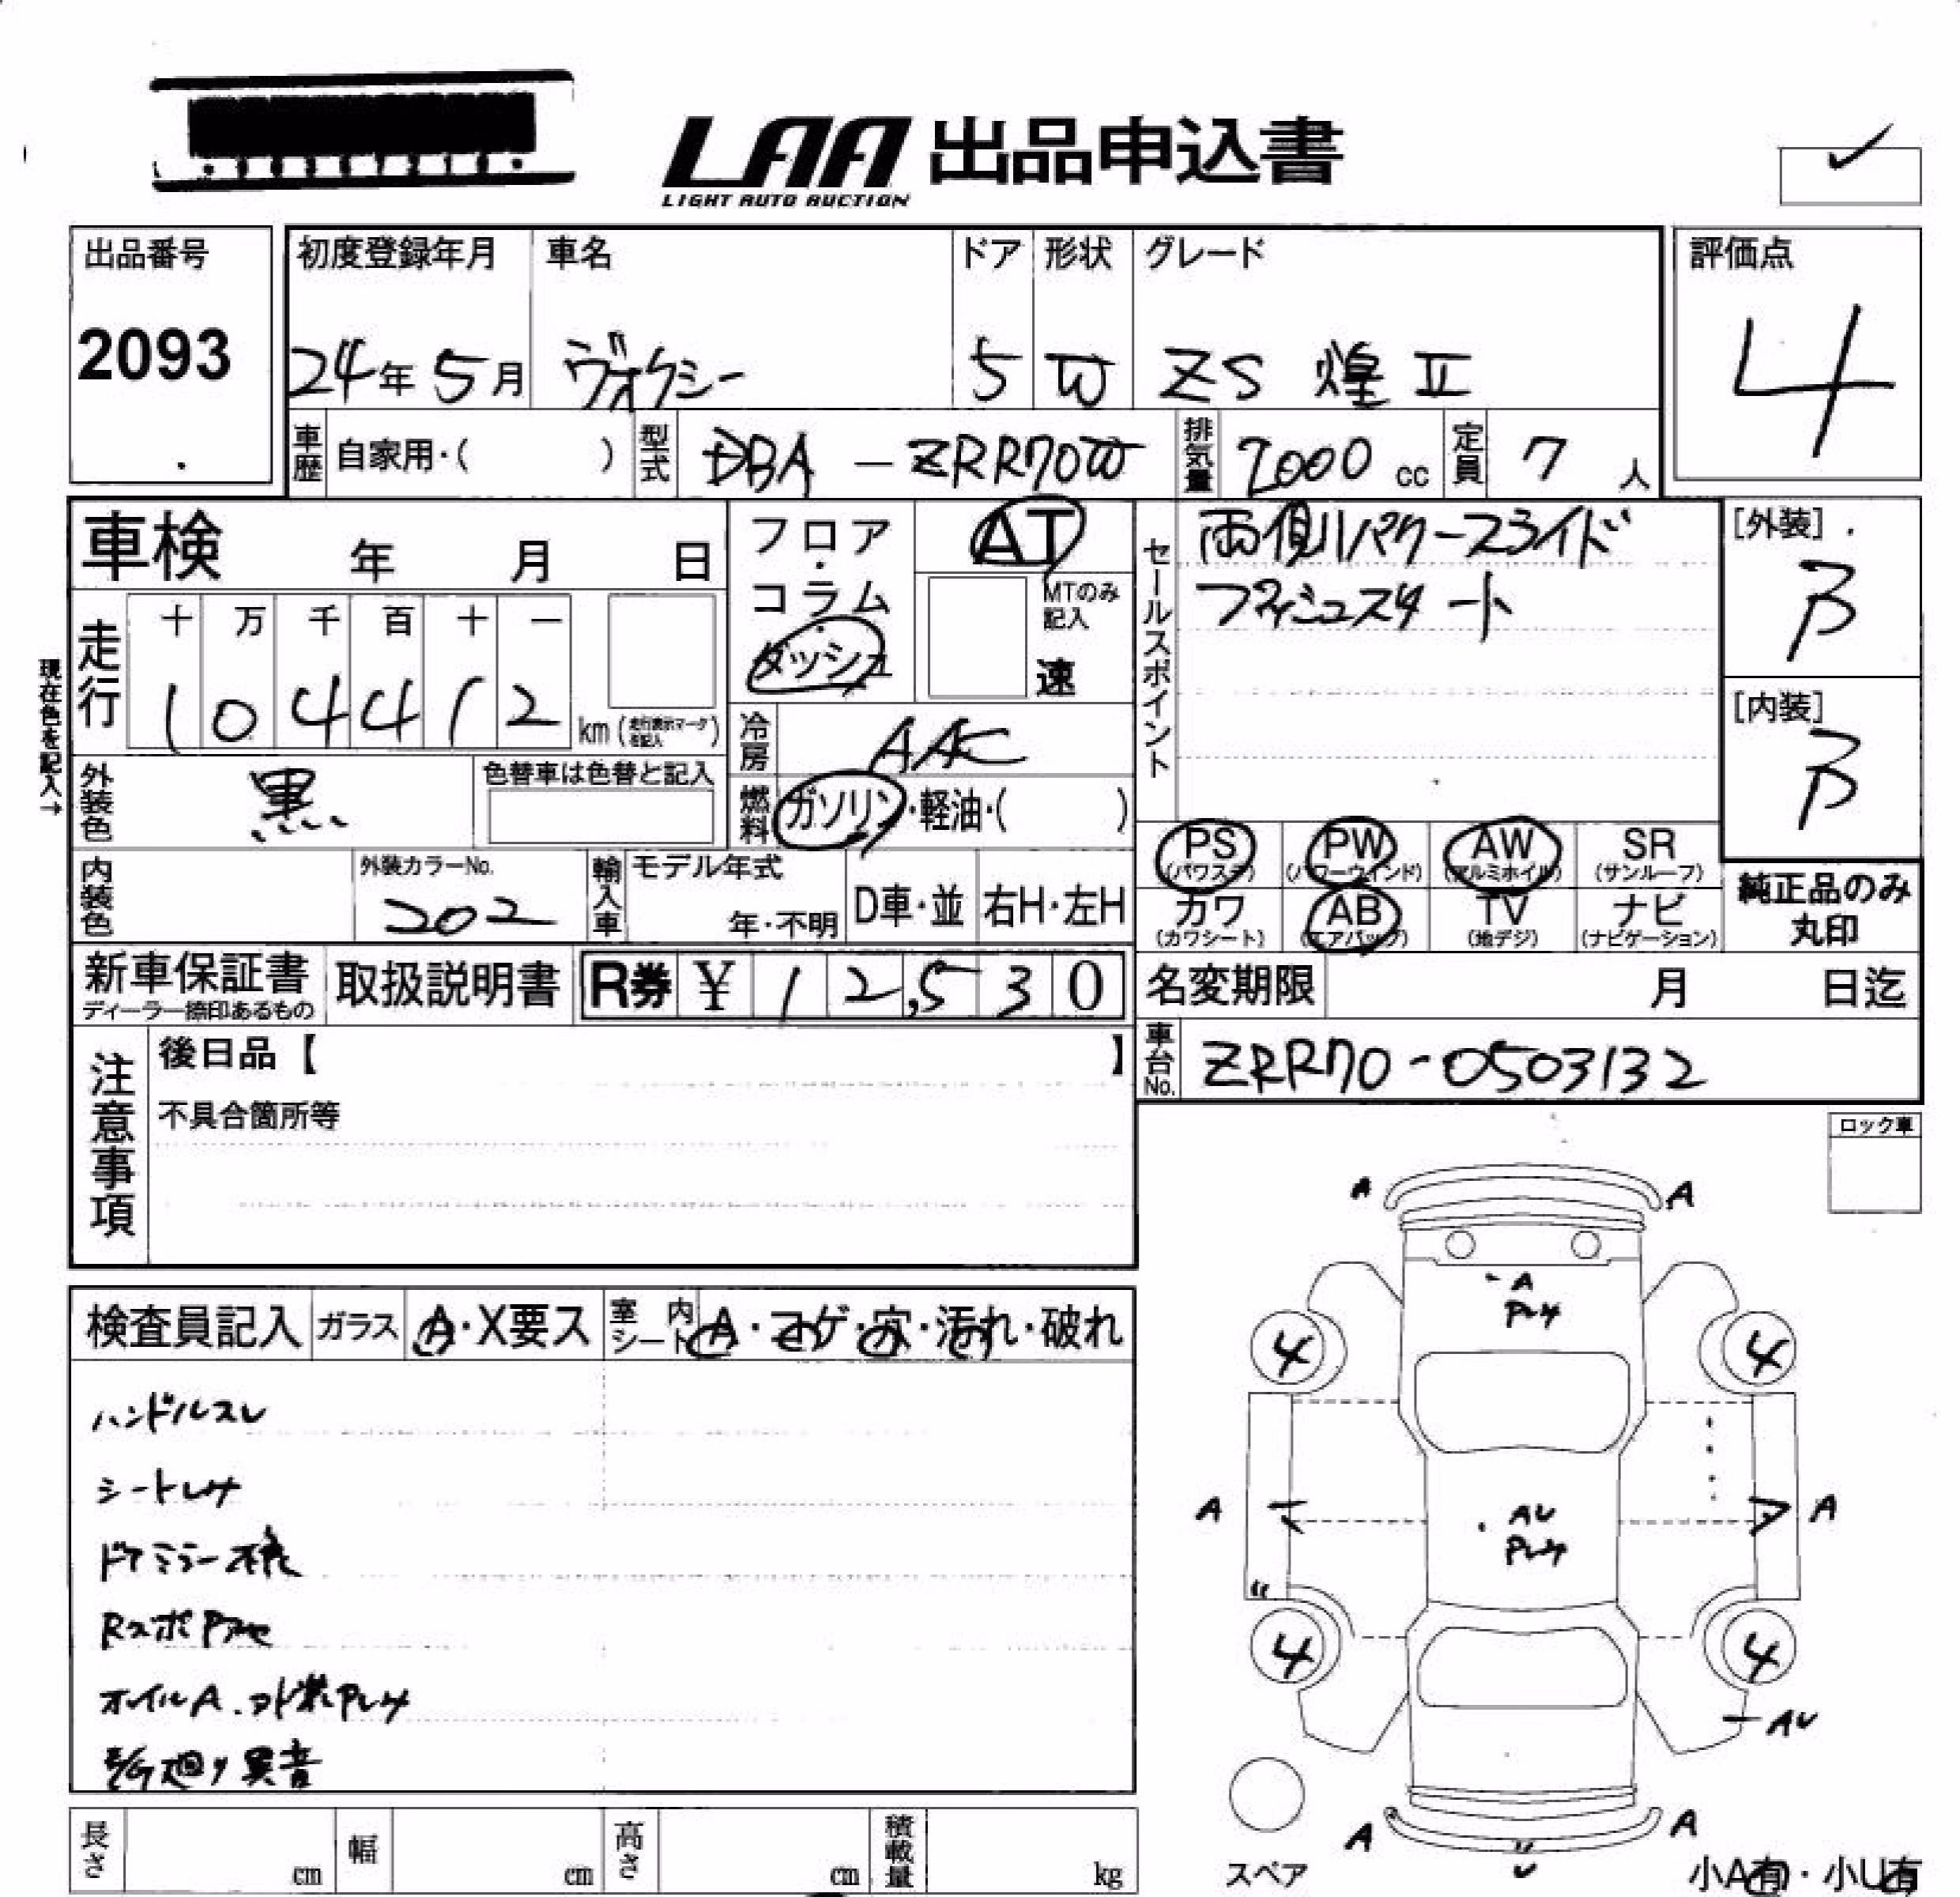 LAA 出品申込書
LIGHT AUTO AUCTION
出品番号 初度登録年月 車名 ドア 形状 グレード 評価点
2093 24年 5月 ヴォクシー 5 W ZS 煌 II 4
車歴 自家用・( ) 型式 DBA - ZRR70W 排気量 2000 cc 定員 7 人
車検 年 月 日 フロア・コラム・ダッシュ AT
MTのみ記入 速
セールスポイント 両側パワースライド
プッシュスタート
[外装] B
[内装] B
現在色を記入→
走行 十 万 千 百 十 一
1 0 4 4 1 2 km (走行表示マークを記入)
冷房 AAC
外装色 黒 色替車は色替と記入
燃料 ガソリン・軽油・( )
PS (パワステ) PW (パワーウインド) AW (アルミホイル) SR (サンルーフ)
カワ (カワシート) AB (エアバッグ) TV (地デジ) ナビ (ナビゲーション)
純正品のみ
丸印
内装色 外装カラーNo. 202 輸入車 モデル年式 年・不明 D車・並 右H・左H
新車保証書 ディーラー捺印あるもの 取扱説明書 R券 ¥ 1 2,5 3 0
名変期限 月 日迄
車台No. ZRR70-0503132
注意事項 後日品【 】
不具合箇所等
ロック車
検査員記入 ガラス A・X要ス 室内シート A・コゲ・穴・汚れ・破れ
ハンドルスレ
シートレサ
ドアミラー不良
オイルA.外装Pレサ
異音
A A
A
Pレサ
4 4
A A
AU
Pレサ
4 4
AU
A A
U
スペア
小A有・小U有
長さ cm 幅 cm 高さ cm 積載量 kg